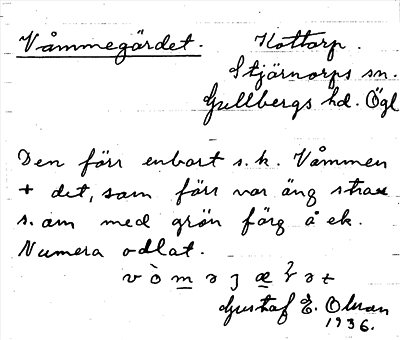 Våmmegärdet. Kottorp.
Stjärnorps sn.
Gullbergs hd. Ögl
Den förr enbart s.k. Våmmen
+ det, som förr var äng strax
s. om med grön färg å ek.
Numera odlat.
Gustaf E. Olsson
1936.